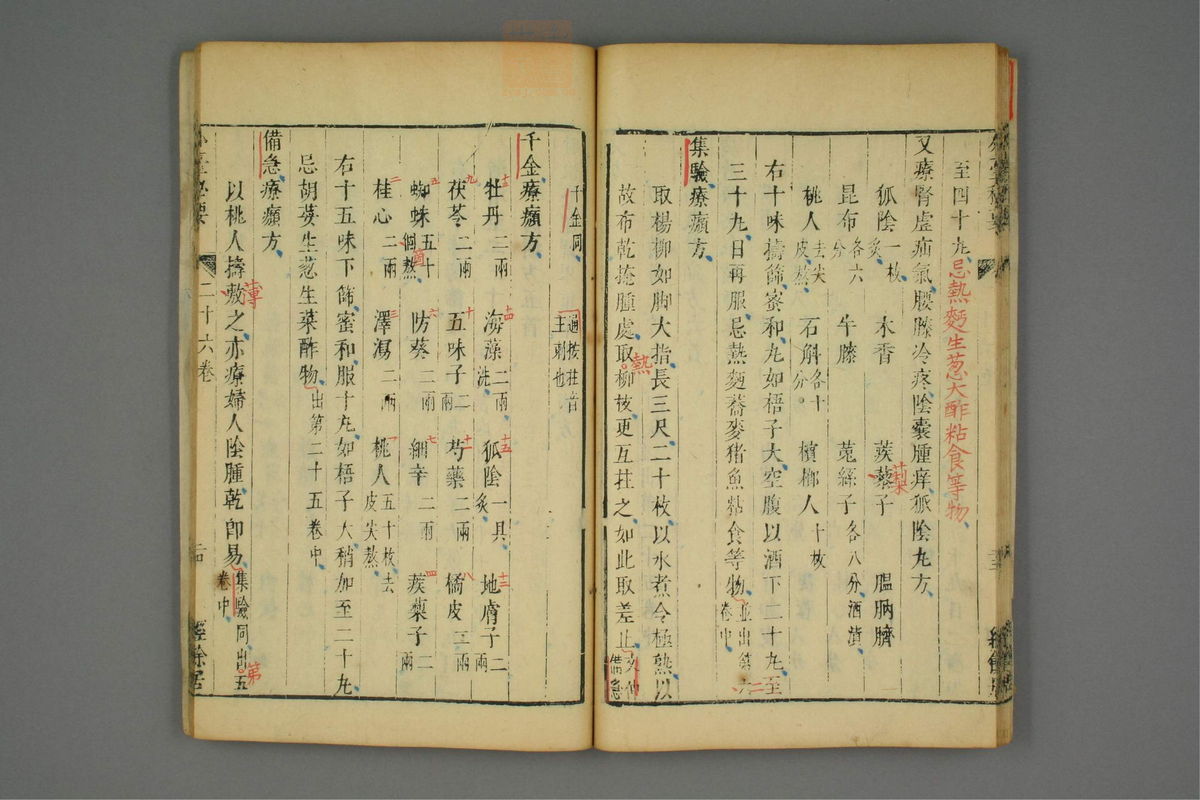 至四十丸忌熱麪生葱大酢粘食等物
又療腎虛疝氣腰膝冷疼陰囊腫痒狐陰丸方
狐陰一枚炙 木香 蒺蔾子 蒺 腽肭臍
昆布各六分 牛膝 菟絲子各八分酒漬
桃人去尖皮熬 石斛各十分 檳榔人十枚
右十味擣篩蜜和丸如梧子大空腹以酒下二十丸至
三十丸日再服忌熱麪蕎麥猪魚粘食等物並出第六卷中二
集驗療㿗方
取楊柳如脚大指長三尺二十枚以水煮令極熱以
故布乾掩腫處取熱柳枝更互拄之如此取差止文仲備急
千金同 通按拄音主刺也
千金療㿗方
牡丹二兩 海藻二兩洗 狐陰一具炙 地膚子二兩
茯苓二兩 五味子二兩 芍藥二兩 橘皮二兩
蜘蛛五十個熬 防葵二兩 細辛二兩 蒺蔾子二兩
桂心二兩 澤瀉二兩 桃人五十枚去皮尖熬
右十五味下篩蜜和服十丸如梧子大稍加至二十九
忌胡荽生葱生菜酢物出第二十五卷中
備急療㿗方
以桃人擣敷之亦療婦人陰腫乾即易集驗同出第五卷中
二十六卷
經餘居